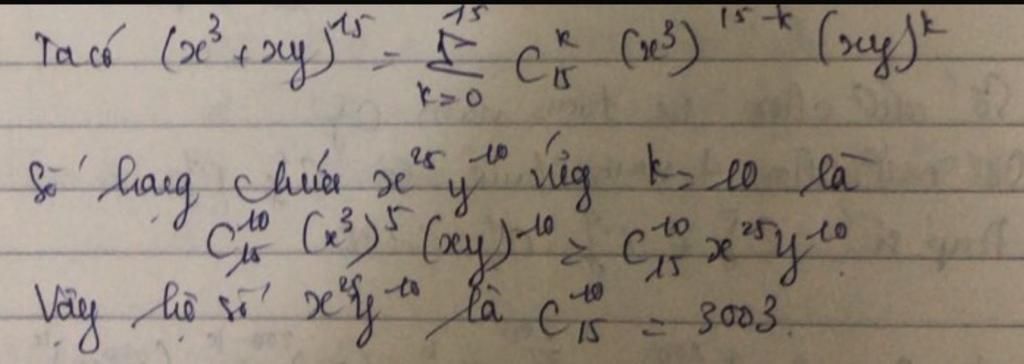 Ta có (x³ + xy)¹⁵ = Σₖ₌₀¹⁵ C₁₅ᵏ (x³)¹⁵⁻ᵏ (xy)ᵏ
Số hạng chứa x²⁵y¹⁰ ứng k = 10 là
C₁₅¹⁰ (x³)⁵ (xy)¹⁰ = C₁₅¹⁰ x²⁵y¹⁰
Vậy hệ số x²⁵y¹⁰ là C₁₅¹⁰ = 3003.